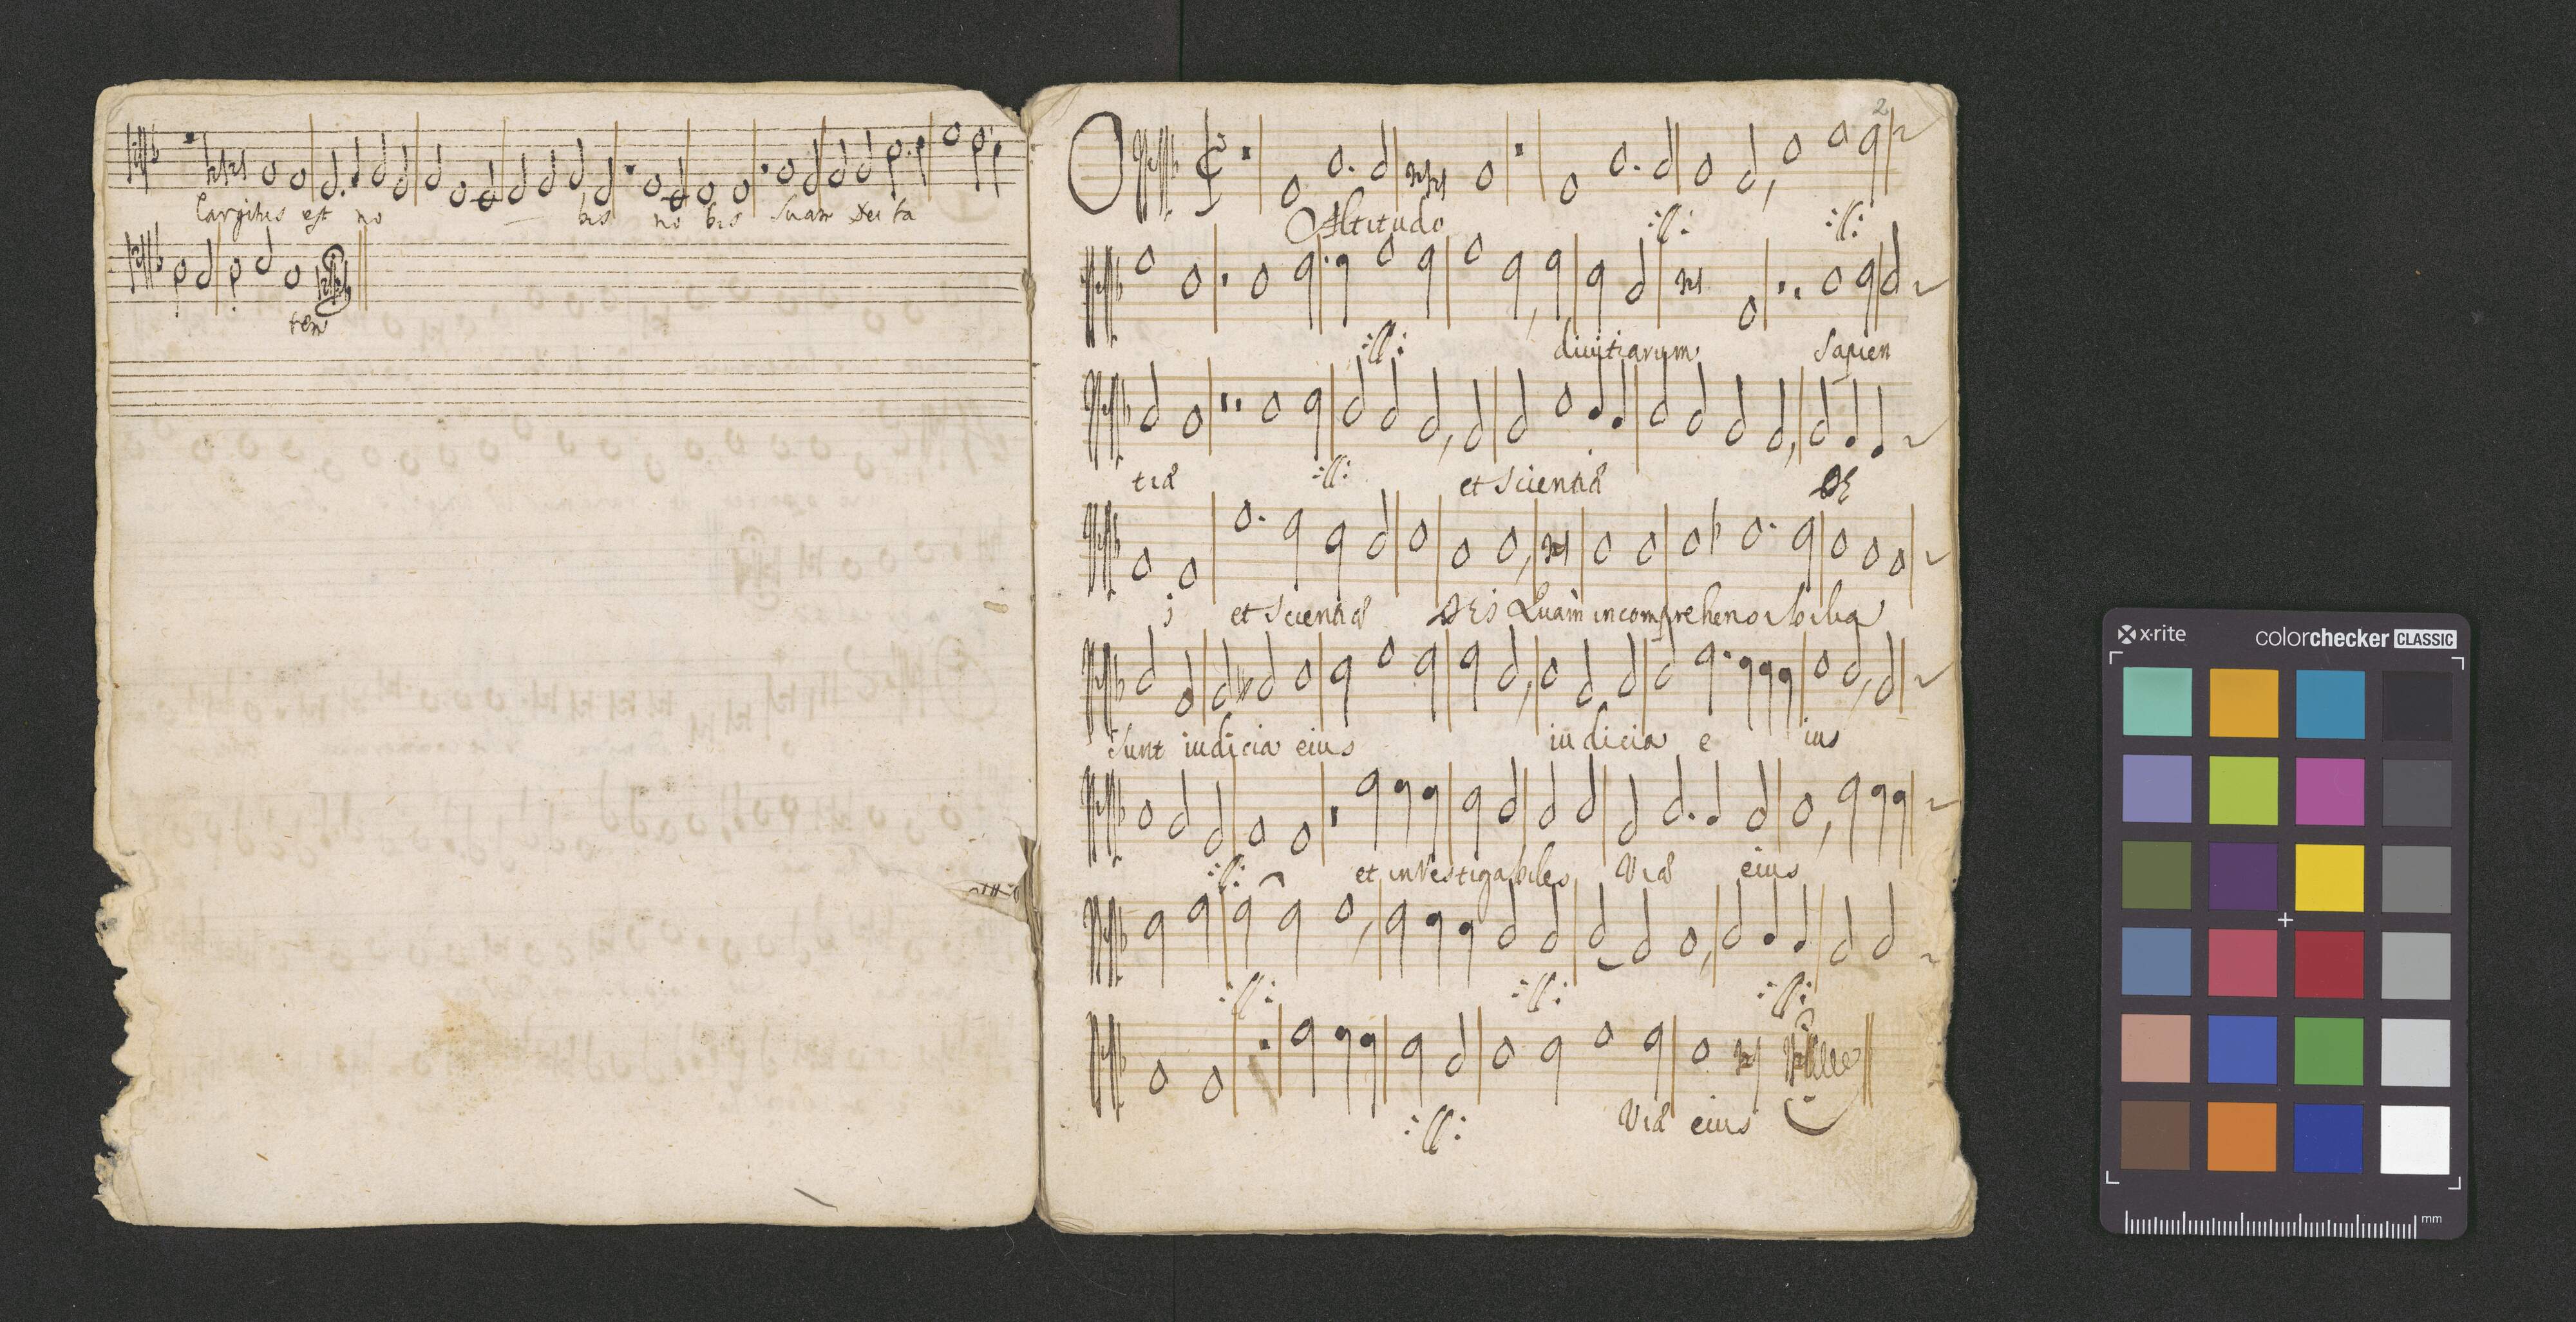 Largitus est no bis no bis Suam Deita
tem
2
O Altitudo ://: ://:
://: divitiarum Sapien
tiæ ://: et Scientiæ DE
j et Scientiæ DEj Quam incomprehensibilia
Sunt iudicia eius iudicia e ius
://: et investigabiles Viæ eius
://: ://: ://:
://: Viæ eius
x·rite colorchecker CLASSIC
mm